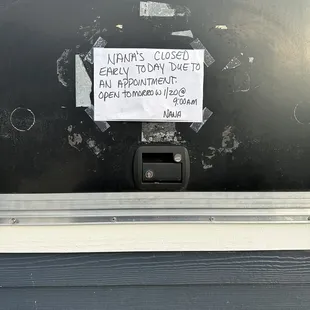 NANA'S CLOSED
EARLY TODAY DUE TO
AN APPOINTMENT.
OPEN TOMORROW 1/20 @
9:00 AM
NANA